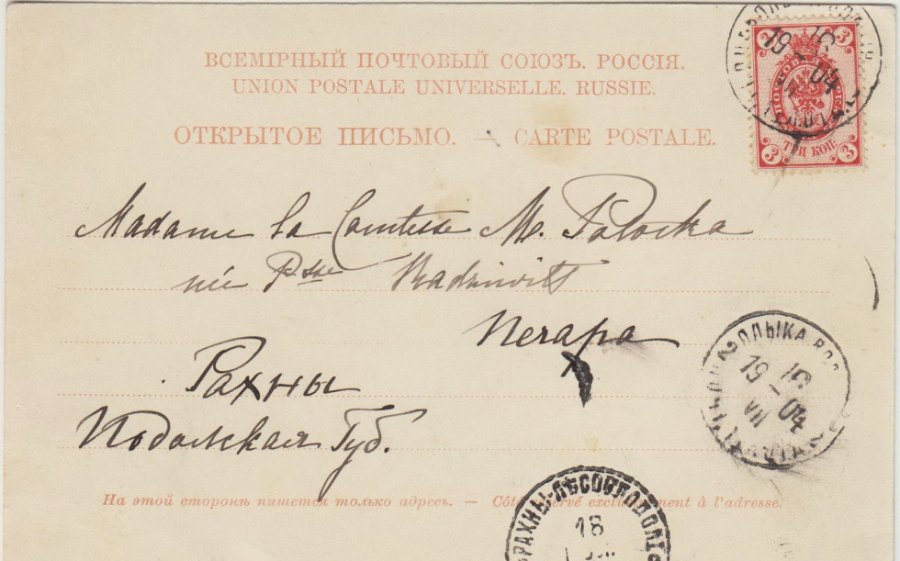 ВСЕМІРНЫЙ ПОЧТОВЫЙ СОЮЗЪ. РОССІЯ.
UNION POSTALE UNIVERSELLE. RUSSIE.
ОТКРЫТОЕ ПИСЬМО. — CARTE POSTALE.
3 3
ТРИ КОП.
19 16
VII 04
Madame la Comtesse M. Potocka
née Psse Radziwill
Печара
Рахны
Подольская Губ.
ОЛЫКА ВОЛ.
19 16
VII 04
На этой сторонѣ пишется только адресъ. — Côté réservé exclusivement à l'adresse.
РАХНЫ-ЛѢСОВ ПОДОЛ
18